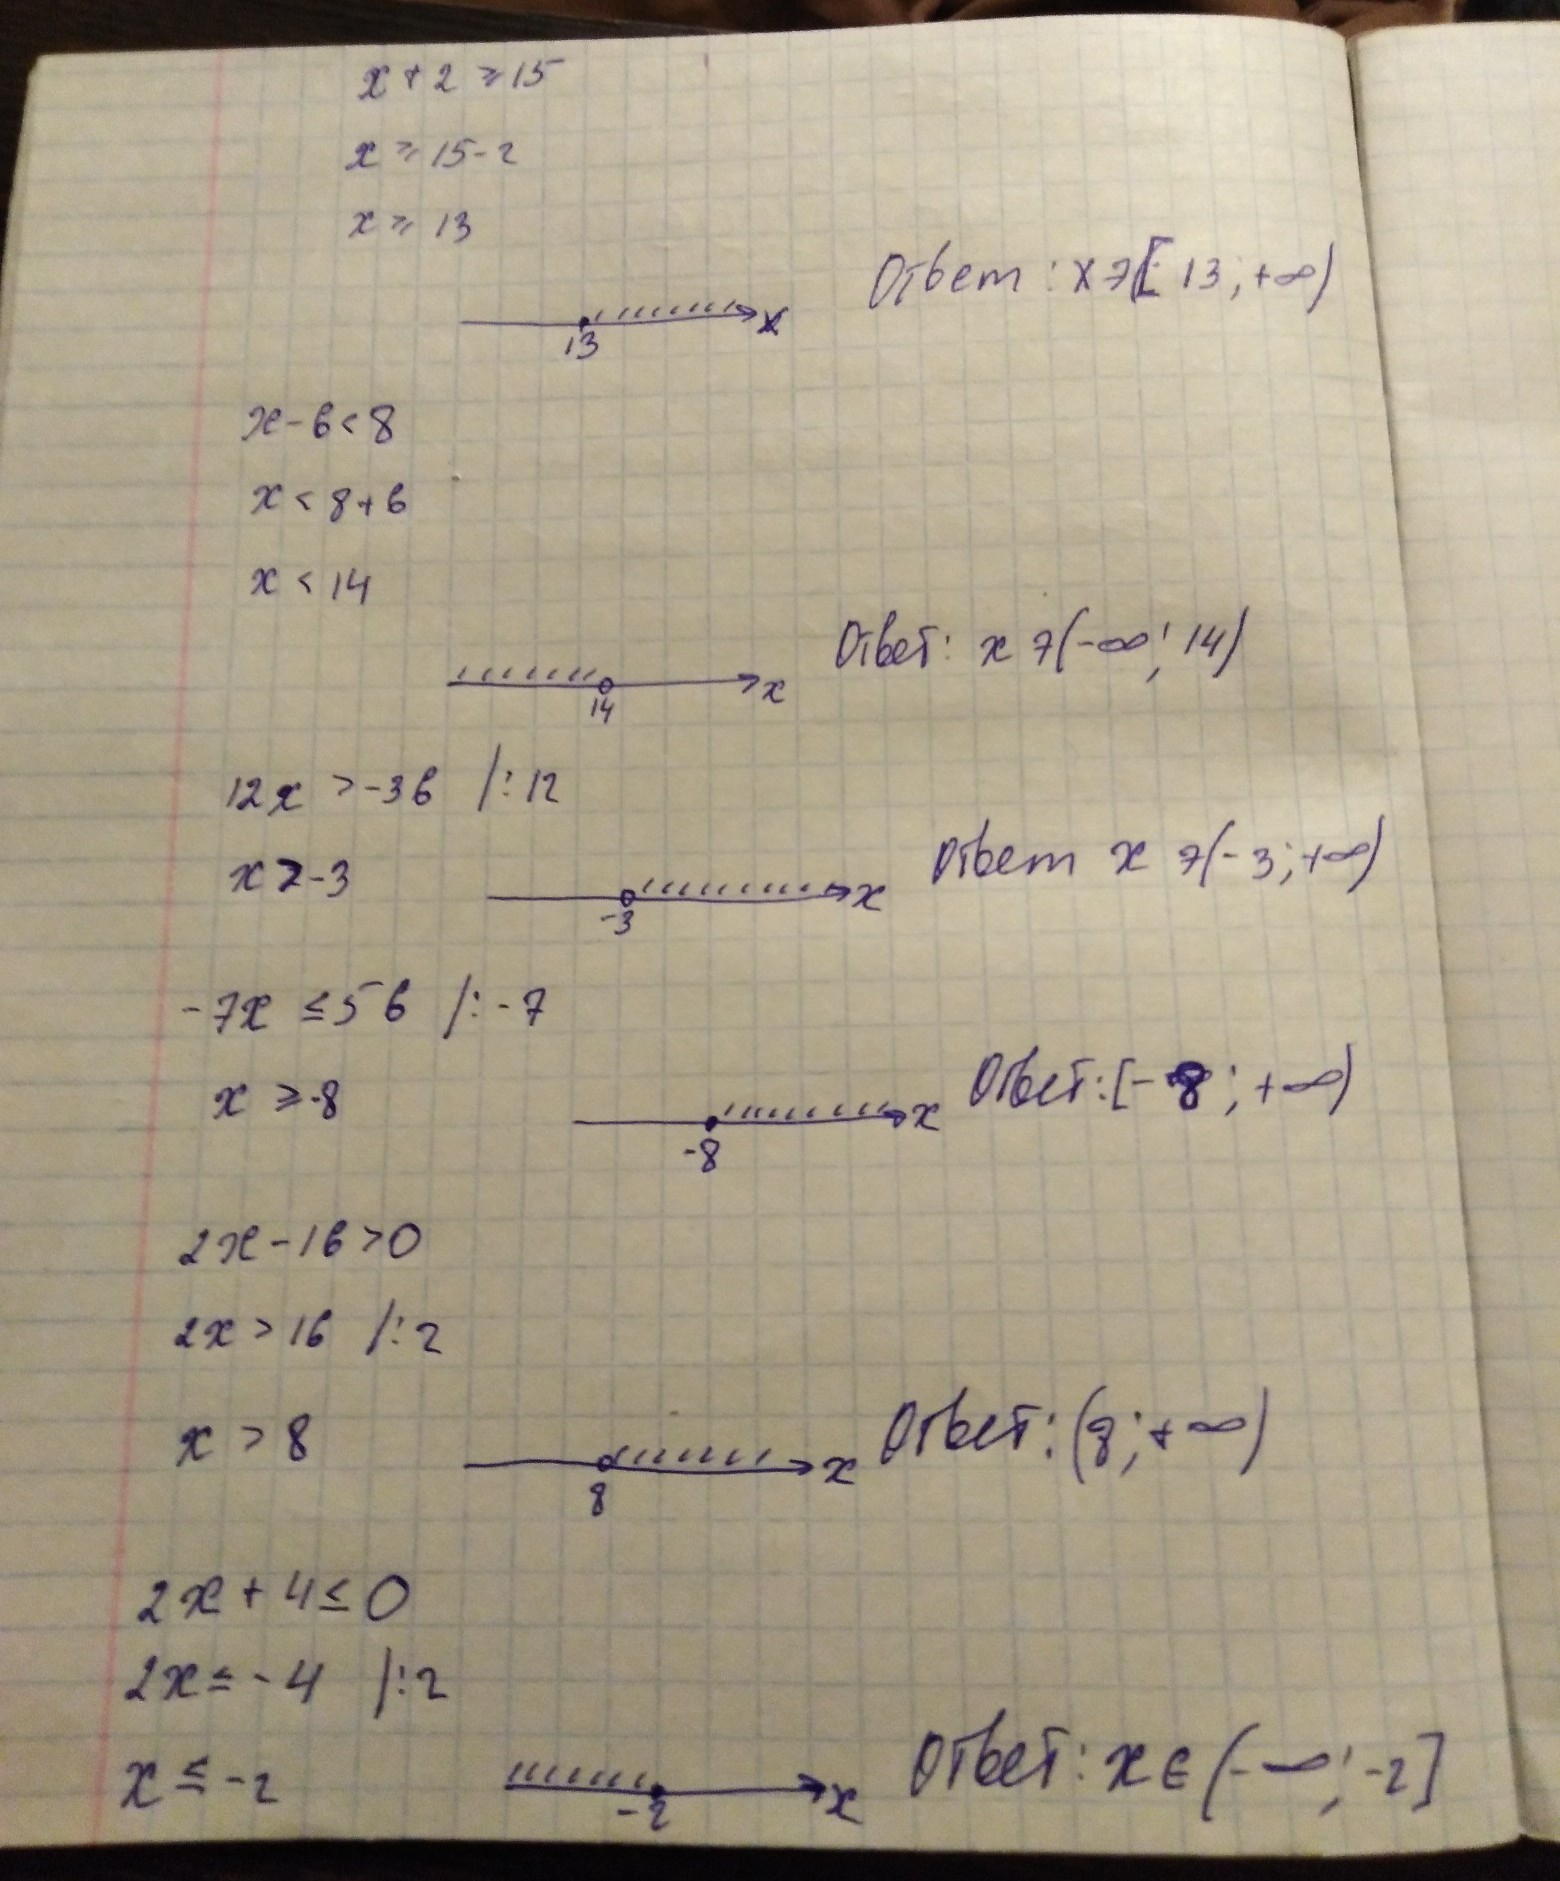 x + 2 ≥ 15
x ≥ 15 - 2
x ≥ 13
Ответ: x э [13; +∞)
13 x
x - 6 < 8
x < 8 + 6
x < 14
Ответ: x э (-∞; 14)
14 x
12x > -36 /: 12
x > -3
Ответ x э (-3; +∞)
-3 x
-7x ≤ 56 /: -7
x ≥ -8
Ответ: [-8; +∞)
-8 x
2x - 16 > 0
2x > 16 /: 2
x > 8
Ответ: (8; +∞)
8 x
2x + 4 ≤ 0
2x ≤ -4 /: 2
x ≤ -2
Ответ: x ∈ (-∞; -2]
-2 x